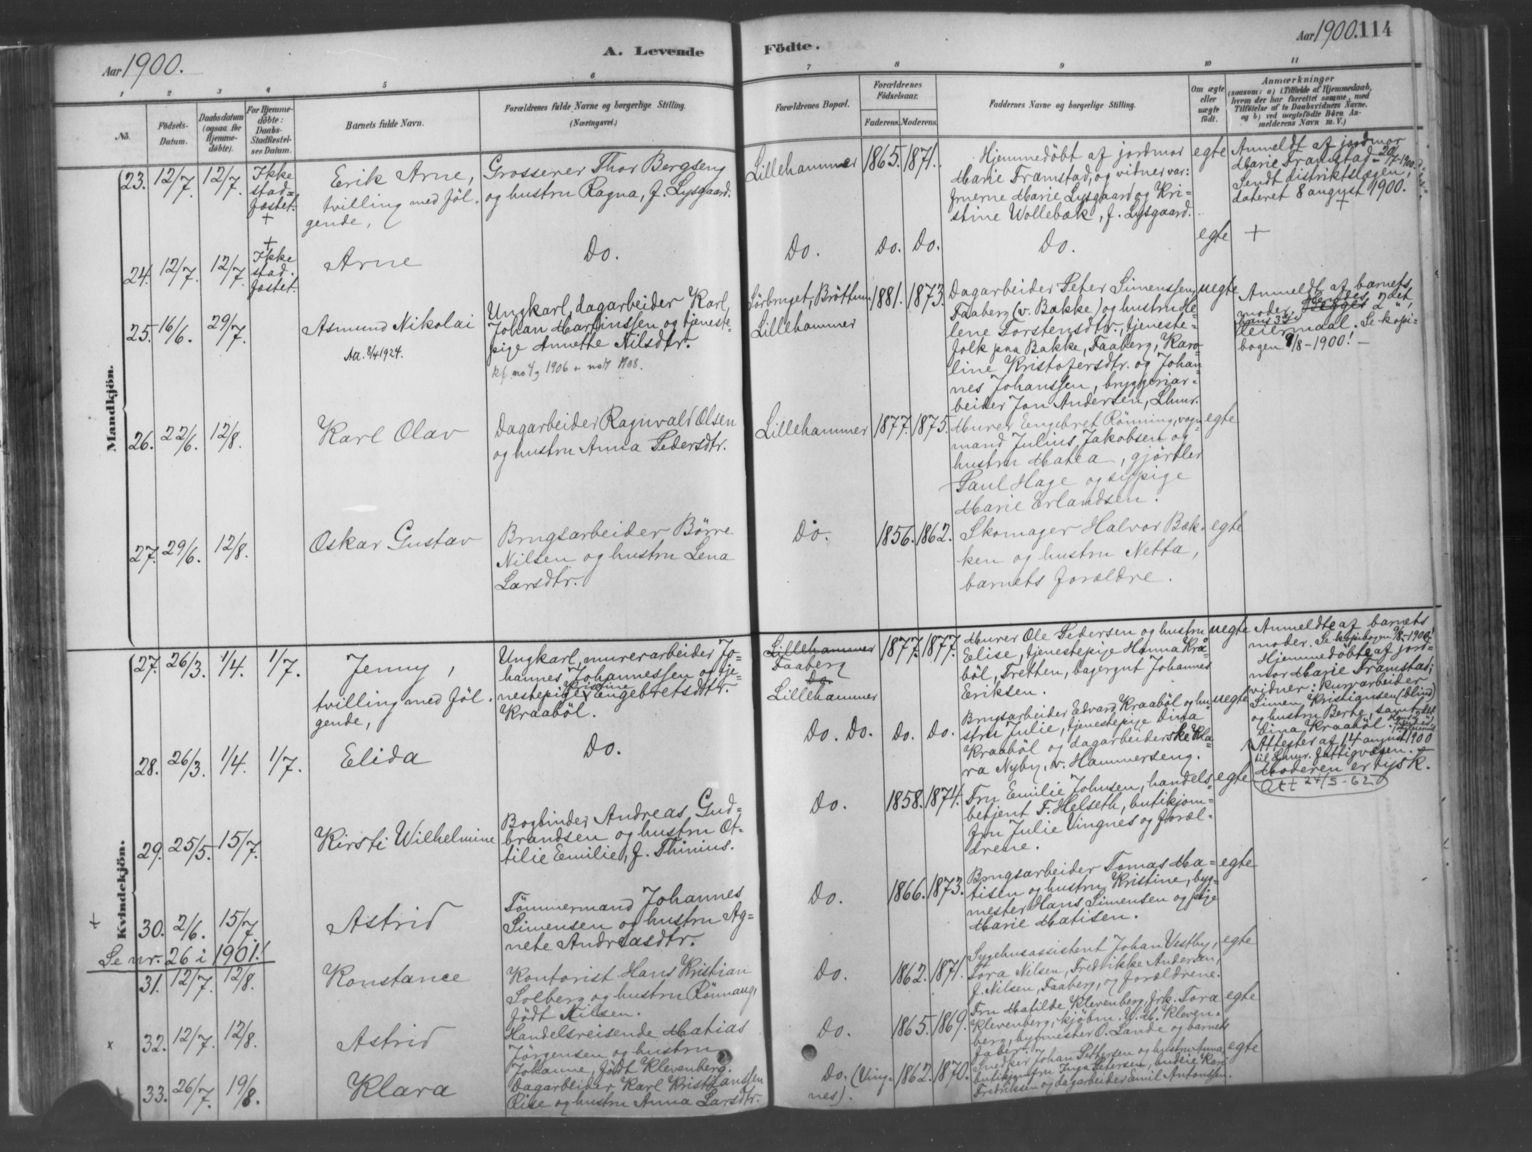 Aar 1900.
A. Levende
Födte.
Aar 1900. 114
1 2 3 4 5 6 7 8 9 10 11
No.
Födsels-
Datum.
Daabsdatum
(ogsaa for
Hjemme-
döbte).
For Hjemme-
döbte:
Daabs-
Stadfæstel-
ses Datum.
Barnets fulde Navn.
Forældrenes fulde Navne og borgerlige Stilling.
(Næringsvei.)
Forældrenes Bopæl.
Forældrenes
Födselsaar.
Faderens. Moderens.
Faddernes Navne og borgerlige Stilling.
Om ægte
eller
uægte
födt.
Anmærkninger
Mandkjön.
23. 12/7. 12/7. Ikke
stad-
fæstet.
+
Erik Arne,
tvilling med föl-
gende,
Grosserer Thor Bergseng
og hustru Ragna, f. Lysgaard.
Lillehammer 1865. 1871.
Hjemmedöbt af jordmor
Marie Framstad, og vitner var:
fruerne Marie Lysgaard og Kri-
stine Wollebæk, f. Lysgaard.
egte
Anmeldt af jordmor
Marie Framstad
Sendt distriktslægen,
dateret 8 august 1900.
+
24. 12/7. 12/7. +
Ikke
stad-
fæstet.
Arne
Do.
Do. Do. Do. Do. egte +
25. 16/6. 29/7.
Asmund Nikolai
Ungkarl, dagarbeider Karl
Johan Martinussen og tjeneste-
pige Annette Nilsdtr.
Sörbruget, Bröttum
Lillehammer
1881. 1873.
Dagarbeider Peter Simensen,
Faaberg (v. Bakke) og hustru He-
lene Torstensdtr., tjeneste-
folk paa Bakke, Faaberg, Karo-
line Kristofersdtr. og Johan-
nes Johanssen, bryggeriar-
beider Jon Andersen, Lhmr.
uegte
Anmeldt af barnets
moder.
leiermaal. Se kopi-
bogen 9/8-1900! —
26. 22/6. 12/8.
Karl Olav
Dagarbeider Ragnvald Olsen
og hustru Anna Pedersdtr.
Lillehammer 1877. 1875.
Murer Engebret Rönning, vogn-
mand Julius Jakobsen og
hustru Matea, gjörtler
Paul Hage og sypige
Marie Erlandsen.
egte
27. 29/6. 12/8.
Oskar Gustav
Brugsarbeider Börre
Nilsen og hustru Lena
Larsdtr.
Do. 1856. 1862.
Skomager Halvor Bæk-
ken og hustru Netta,
barnets forældre.
egte
Kvindekjön.
27. 26/3. 1/4. 1/7.
Jenny,
tvilling med föl-
gende,
Ungkarl, murerarbeider Jo-
hannes Johannessen og tje-
nestepige Kristine Engebretsdtr.
Kraaböl.
Lillehammer
Faaberg
Do.
Lillehammer
1877. 1877.
Murer Ole Pedersen og hustru
Elise, tjenestepige Hanna Kra-
böl, Fretten, bagergut Johannes
Eriksen.
uegte
Anmeldte af barnets
moder.
Hjemmedöbte af jord-
mor Marie Framstad;
vidner: kurvarbeider
Simen Kristiansen (blind)
og hustru Berte, samt
Dina Kraaböl.
Attester af 14 august 1900
til Lhmr. fattigvæsen.
Moderen er tysk.
Att 24/5-62
28. 26/3. 1/4. 1/7.
Elida
Do.
Do. Do. Do. Do.
Brugsarbeider Edvard Kraaböl og hu-
stru Julie, tjenestepige Dina
Kraaböl og dagarbeiderske Kla-
ra Nyby, v. Hammerseng.
uegte
29. 25/5. 15/7.
Kirsti Wilhelmine
Bogbinder Andreas Gud-
brandsen og hustru Ot-
tilie Emilie, f. Thinius.
Do. 1858. 1874.
Frø. Emilie Johnsen, handels-
betjent F. Helseth, butikjom-
fru Julie Vingnes og foræl-
drene.
egte
30. 2/6. 15/7.
Astrid
Tömmermand Johannes
Simensen og hustru Ag-
nete Andreasdtr.
Do. 1866. 1873.
Brugsarbeider Tomas Ma-
tisen og hustru Kristine, byg-
mester Hans Simensen og pige
Marie Matisen.
egte
Se nr. 26 i 1901!
31. 12/7. 12/8.
Konstance
Kontorist Hans Kristian
Solberg og hustru Rönnaug,
födt Nilsen.
Do. 1862. 1871.
Sygehusassistent Johan Vestby,
Tora Nilsen, Fredrikke Andersen,
f. Nilsen, Faaberg, og forældrene.
egte
32. 12/7. 12/8.
Astrid
Handelsreisende Matias
Jörgensen og hustru
Johanne, födt Klevenberg.
Do. 1865. 1869.
Fru Matilde Klevenberg, frk. Tora
Klevenberg, kjöbm. W. M. Kleven-
berg, bymester O. Lande og barnets
fader.
egte
33. 26/7. 19/8.
Klara
Dagarbeider Karl Kristianssen
Rise og hustru Anna Larsdtr.
Do. (Ving-
nes). 1862. 1870.
Snedker Johan Pettersen og hustru Anna,
butikjomfru Inga Petersen,
Fredriksen og dagarbeider Emil Antonsen.
egte